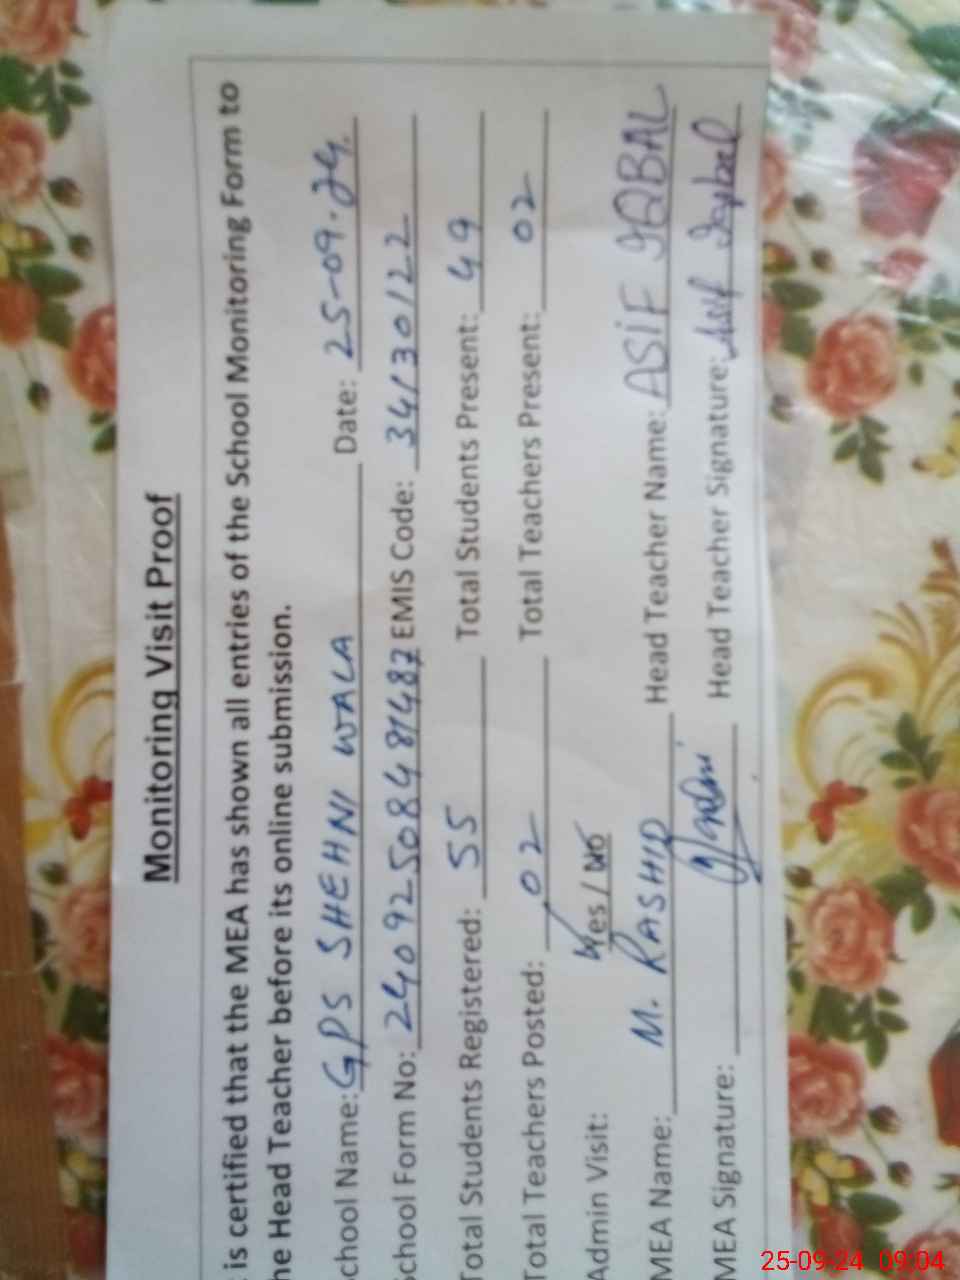 Monitoring Visit Proof
is certified that the MEA has shown all entries of the School Monitoring Form to
he Head Teacher before its online submission.
chool Name: GPS SHEHNI WALA Date: 25-09-24.
School Form No: EMIS Code: 34130122
Total Students Registered: 55 Total Students Present: 49
Total Teachers Posted: 02 Total Teachers Present: 02
Admin Visit: Yes / No
MEA Name: M. RASHID Head Teacher Name: ASIF IQBAL
MEA Signature: Head Teacher Signature: Asif Iqbal
25-09-24 09:04